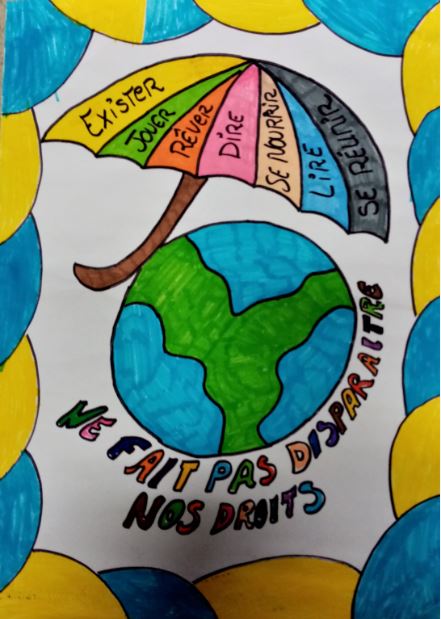 EXISTER
JOUER
RÊVER
DIRE
SE NOURRIR
LIRE
SE RÉUNIR
NE FAIT PAS DISPARAITRE
NOS DROITS